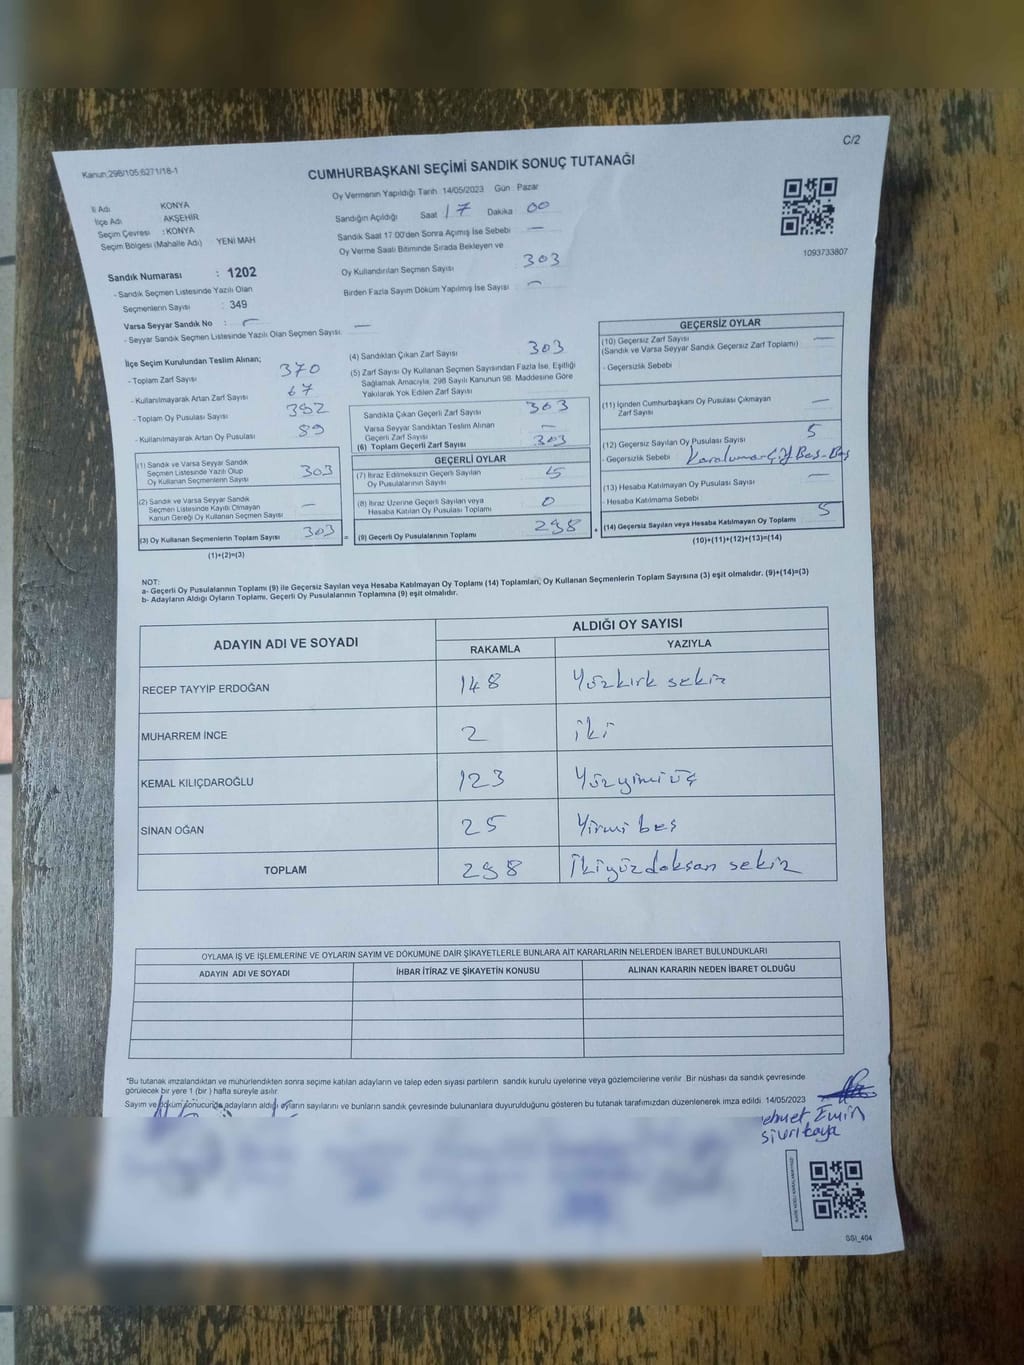 C/2
Kanun;298/105;6271/18-1
CUMHURBAŞKANI SEÇİMİ SANDIK SONUÇ TUTANAĞI
Oy Vermenin Yapıldığı Tarih :14/05/2023 Gün : Pazar
İl Adı KONYA
İlçe Adı AKŞEHİR
Seçim Çevresi : KONYA
Seçim Bölgesi (Mahalle Adı) YENİ MAH
Sandığın Açıldığı Saat 17 Dakika 00
Sandık Saat 17.00'den Sonra Açımış İse Sebebi —
Oy Verme Saati Bitiminde Sırada Bekleyen ve
Oy Kullandırılan Seçmen Sayısı 303
Birden Fazla Sayım Döküm Yapılmış İse Sayısı —
1093733807
Sandık Numarası : 1202
- Sandık Seçmen Listesinde Yazılı Olan
Seçmenlerin Sayısı : 349
Varsa Seyyar Sandık No : —
- Seyyar Sandık Seçmen Listesinde Yazılı Olan Seçmen Sayısı: —
İlçe Seçim Kurulundan Teslim Alınan;
- Toplam Zarf Sayısı 370
- Kullanılmayarak Artan Zarf Sayısı 67
- Toplam Oy Pusulası Sayısı 382
- Kullanılmayarak Artan Oy Pusulası 89
(1) Sandık ve Varsa Seyyar Sandık
Seçmen Listesinde Yazılı Olup
Oy Kullanan Seçmenlerin Sayısı 303
(2) Sandık ve Varsa Seyyar Sandık
Seçmen Listesinde Kayıtlı Olmayan
Kanun Gereği Oy Kullanan Seçmen Sayısı —
(3) Oy Kullanan Seçmenlerin Toplam Sayısı 303 =
(1)+(2)=(3)
(4) Sandıktan Çıkan Zarf Sayısı 303
(5) Zarf Sayısı Oy Kullanan Seçmen Sayısından Fazla İse, Eşitliği
Sağlamak Amacıyla, 298 Sayılı Kanunun 98. Maddesine Göre
Yakılarak Yok Edilen Zarf Sayısı
Sandıkta Çıkan Geçerli Zarf Sayısı 303
Varsa Seyyar Sandıktan Teslim Alınan
Geçerli Zarf Sayısı —
(6) Toplam Geçerli Zarf Sayısı 303
GEÇERLİ OYLAR
(7) İtiraz Edilmeksizin Geçerli Sayılan
Oy Pusulalarının Sayısı
(8) İtiraz Üzerine Geçerli Sayılan veya
Hesaba Katılan Oy Pusulası Toplamı 0
(9) Geçerli Oy Pusulalarının Toplamı 298 +
GEÇERSİZ OYLAR
(10) Geçersiz Zarf Sayısı —
(Sandık ve Varsa Seyyar Sandık Geçersiz Zarf Toplamı)
- Geçersizlik Sebebi
(11) İçinden Cumhurbaşkanı Oy Pusulası Çıkmayan
Zarf Sayısı —
(12) Geçersiz Sayılan Oy Pusulası Sayısı 5
- Geçersizlik Sebebi Karaluma-Çift Bas-Boş
(13) Hesaba Katılmayan Oy Pusulası Sayısı —
- Hesaba Katılmama Sebebi
(14) Geçersiz Sayılan veya Hesaba Katılmayan Oy Toplamı 5
(10)+(11)+(12)+(13)=(14)
NOT:
a- Geçerli Oy Pusulalarının Toplamı (9) ile Geçersiz Sayılan veya Hesaba Katılmayan Oy Toplamı (14) Toplamları, Oy Kullanan Seçmenlerin Toplam Sayısına (3) eşit olmalıdır. (9)+(14)=(3)
b- Adayların Aldığı Oyların Toplamı, Geçerli Oy Pusulalarının Toplamına (9) eşit olmalıdır.
ADAYIN ADI VE SOYADI
ALDIĞI OY SAYISI
RAKAMLA YAZIYLA
RECEP TAYYİP ERDOĞAN 148 Yüzkırk sekiz
MUHARREM İNCE 2 iki
KEMAL KILIÇDAROĞLU 123 Yüzyimi üç
SİNAN OĞAN 25 Yirmi beş
TOPLAM 298 İkiyüzdoksan sekiz
OYLAMA İŞ VE İŞLEMLERİNE VE OYLARIN SAYIM VE DÖKÜMÜNE DAİR ŞİKAYETLERLE BUNLARA AİT KARARLARIN NELERDEN İBARET BULUNDUKLARI
ADAYIN ADI VE SOYADI İHBAR İTİRAZ VE ŞİKAYETİN KONUSU ALINAN KARARIN NEDEN İBARET OLDUĞU
*Bu tutanak imzalandıktan ve mühürlendikten sonra seçime katılan adayların ve talep eden siyasi partilerin sandık kurulu üyelerine veya gözlemcilerine verilir. Bir nüshası da sandık çevresinde
görülecek bir yere 1 (bir) hafta süreyle asılır.
Sayım ve döküm sonucunda adayların aldığı oyların sayılarını ve bunların sandık çevresinde bulunanlara duyurulduğunu gösteren bu tutanak tarafımızdan düzenlenerek imza edildi. 14/05/2023
ehmet Emin
Sivrikaya
SSI_404